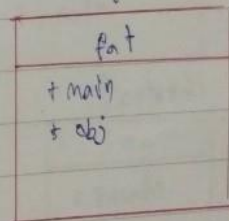 fat
+ main
+ obj